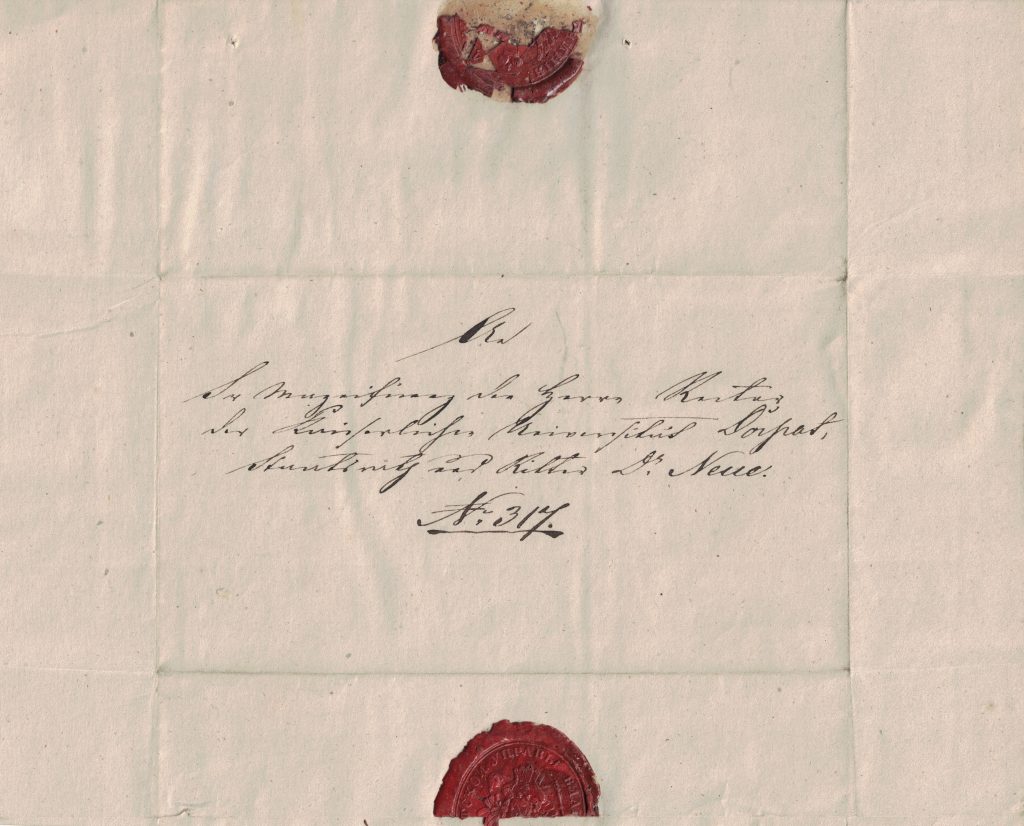 An
Sr Magnificenz den Herrn Rector
der Kaiserlichen Universität Dorpat,
Staatsrath und Ritter Dr. Neue.
Nr. 317.